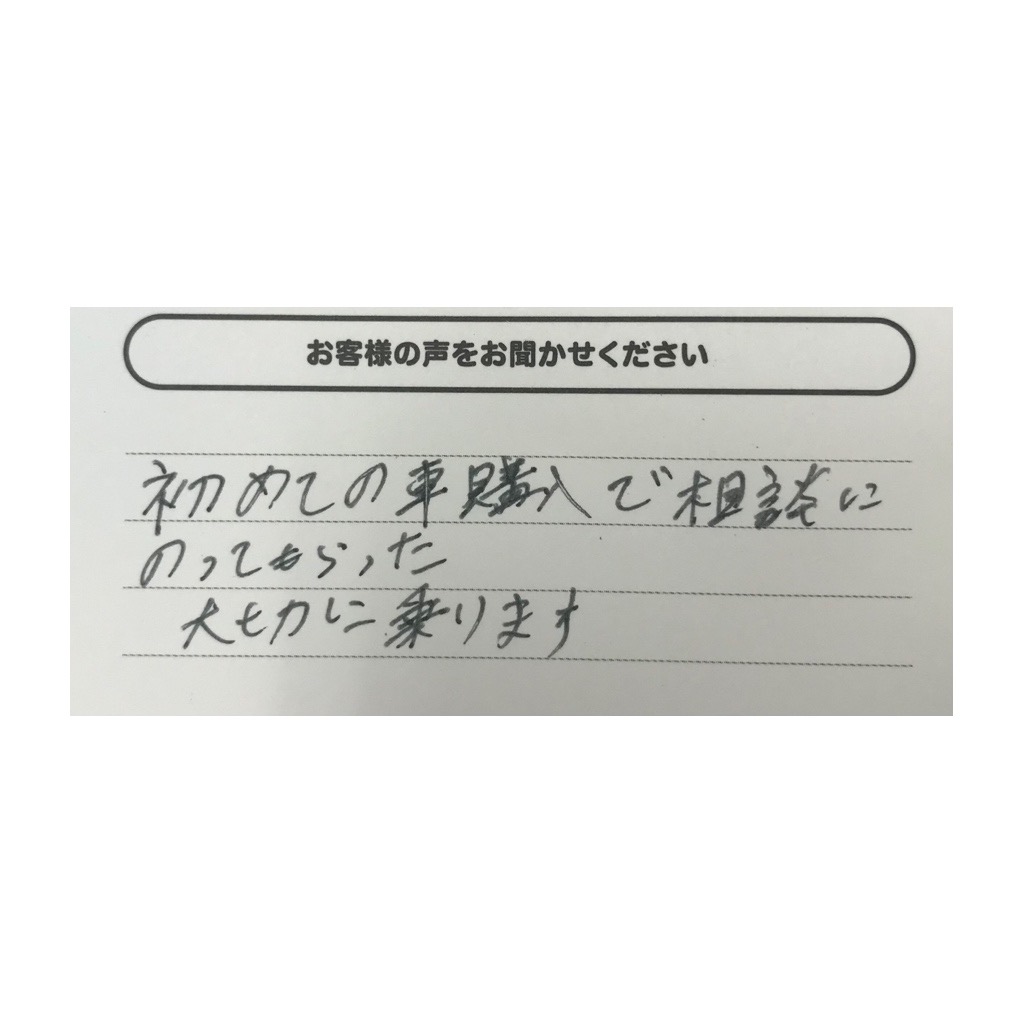 お客様の声をお聞かせください
初めての車購入で相談に
のってもらった
大切に乗ります